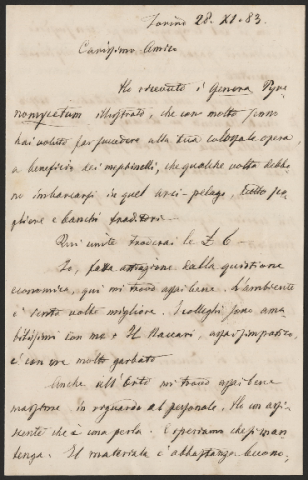 Torino 28. XI. 83.
Carissimo Amico
Ho ricevuto i Genera Pyre
nomycetum illustrata, che con molto senno
hai voluto far precedere alla tua colossale opera,
a beneficio dei meschinelli, che qualche volta debbo
no imbarcarsi in quel arci-pelago, tutto sco
gliere e banchi traditori.
Qui unite troverai le £ 6
Io, fatta astrazione dalla quistione
economica, qui mi trovo assai bene. L'ambiente
è cento volte migliore. I colleghi sono ama
bilissimi con me e il Baccari, assai simpatico,
è con me molto garbato
Anche all'Orto mi trovo assai bene
massime in riguardo al personale. Ho un assi
stente che è una perla. E speriamo che si man
tenga. Il materiale è abbastanza buono,